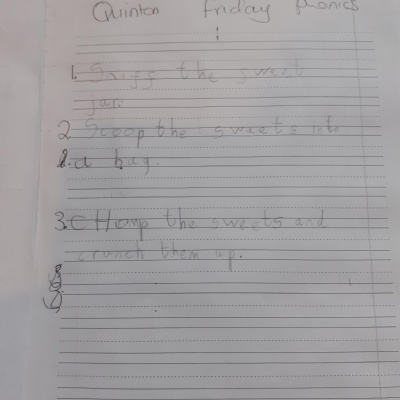 Quinton Friday Phonics
1. Sniff the sweet
jar.
2 Scoop the sweets into
a bag.
3. CHomp the sweets and
crunch them up.